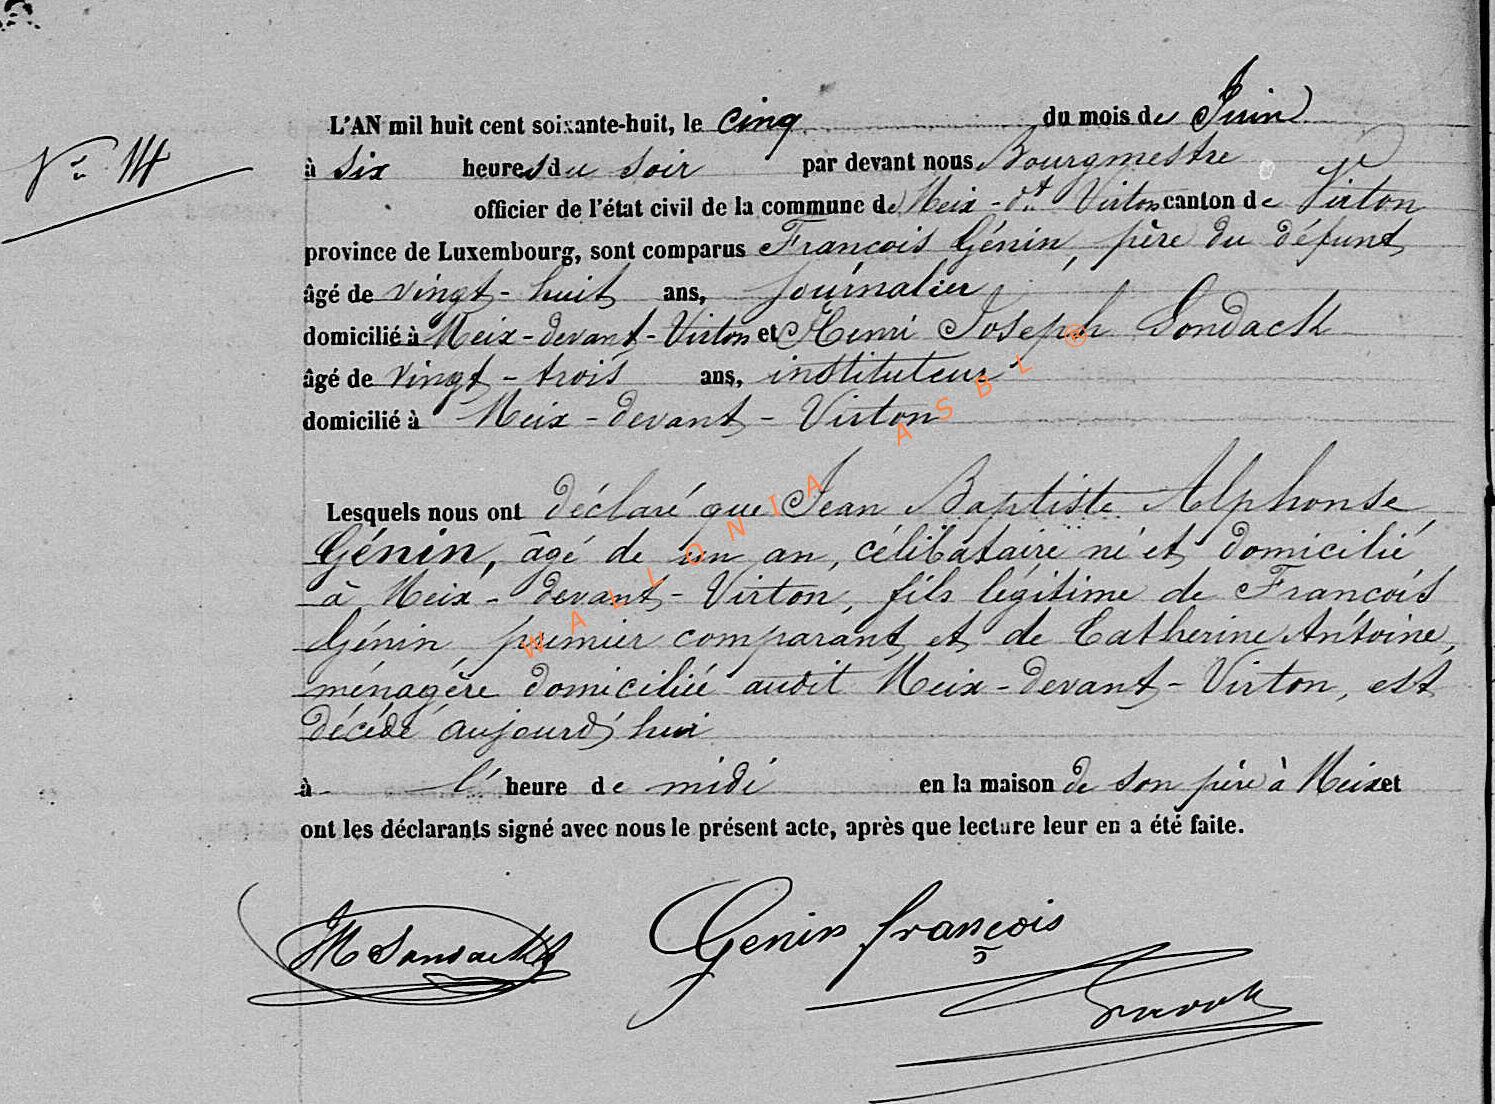 L'AN mil huit cent soixante-huit, le cinq du mois de Juin
N° 14
à six heures du soir par devant nous Bourgmestre
officier de l'état civil de la commune de Meix-dt Virton canton de Virton
province de Luxembourg, sont comparus François Génin, père du défunt,
âgé de vingt-huit ans, journalier
domicilié à Meix-devant-Virton et Henri Joseph Sondack
âgé de vingt-trois ans, instituteur
domicilié à Meix-devant-Virton
Lesquels nous ont déclaré que Jean Baptiste Alphonse
Génin, âgé de un an, célibataire, né et domicilié
à Meix-devant-Virton, fils légitime de François
Génin, premier comparant, et de Catherine Antoine,
ménagère domiciliée audit Meix-devant-Virton, est
décédé aujourd'hui
à l' heure de midi en la maison de son père à Meix et
ont les déclarants signé avec nous le présent acte, après que lecture leur en a été faite.
HSondack Genin françois
WALLONIA ASBL ®